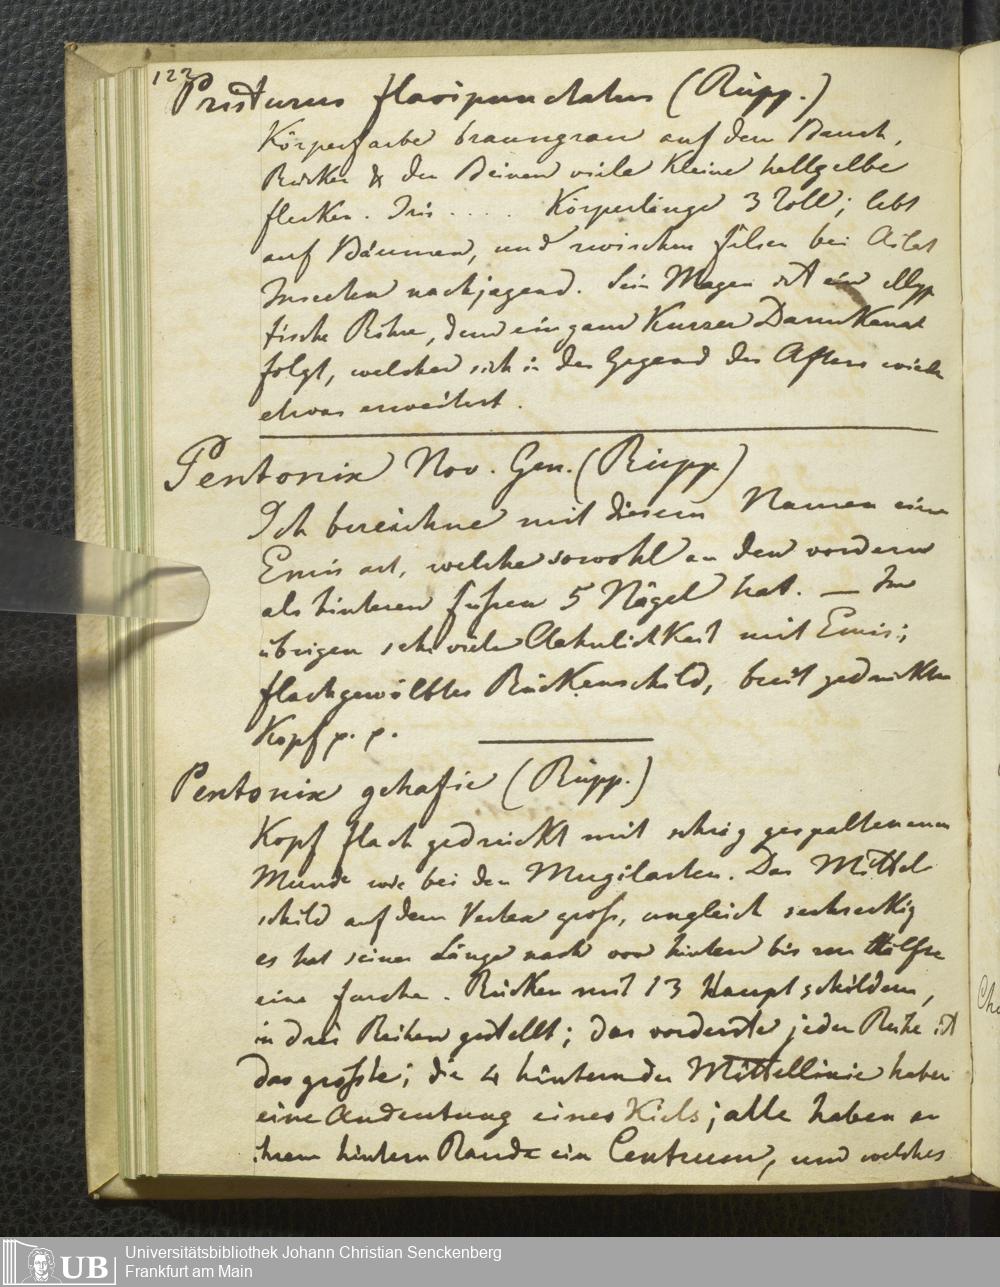 122
Pristurus flavipunctatus (Rüpp.)
Körperfarbe braungrau auf dem Bauch,
Rücken & den Beinen viele kleine hellgelbe
flecken. Iris .... Körperlänge 3 Zoll; lebt
auf Bäumen, und zwischen felsen bei
Insecten nachjagend. Sein Magen ist ein ellyp
tische Röhre, dem ein ganz kurzer Darmkanal
folgt, welcher sich in der Gegend des Afters wieder
etwas erweitert.
Pentonix Nov. Gen. (Rüpp)
Ich bezeichne mit diesem Namen eine
Emis art, welche sowohl an den vordern
als hinteren füssen 5 Nägel hat. — Im
übrigen sehr viele Aehnlichkeit mit Emis;
flachgewölbtes Rückenschild, breit gedrückten
Kopf p. p.
Pentonix gehafie (Rüpp.)
Kopf flach gedrückt mit schräg gespaltenem
Munde wie bei den Mugilarten. Das Mittel
schild auf dem gross, ungleich sechseckig
es hat seiner Länge nach von hinten bis zur Hälfte
eine furche. Rücken mit 13 Hauptschildern,
in drei Reihen gestellt; das vorderste jeder Reihe ist
das grosste; die 4 hintern der Mittellinie haben
eine Andeutung eines Kiels; alle haben an
ihrem hintern Rande ein Centrum, um welches
UB
Universitätsbibliothek Johann Christian Senckenberg
Frankfurt am Main